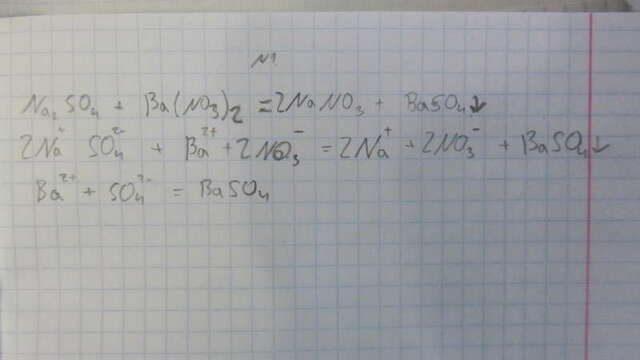 №1.
Na₂SO₄ + Ba(NO₃)₂ = 2NaNO₃ + BaSO₄↓
2Na⁺ SO₄²⁻ + Ba²⁺ + 2NO₃⁻ = 2Na⁺ + 2NO₃⁻ + BaSO₄↓
Ba²⁺ + SO₄²⁻ = BaSO₄